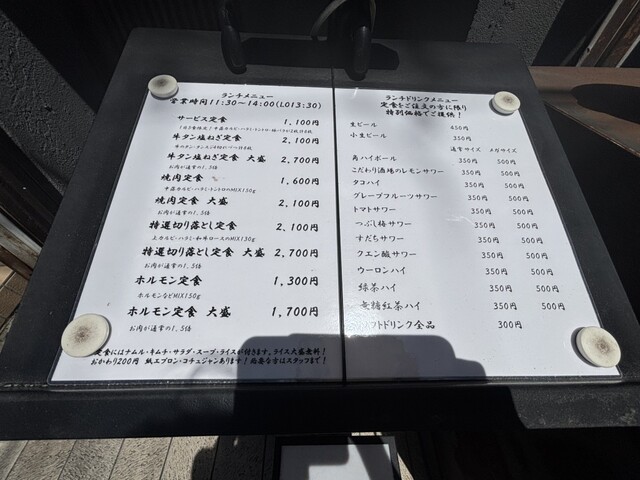 ランチメニュー
営業時間11:30～14:00(LO13:30)
サービス定食 1,100円
牛タン塩ねぎ定食 2,100円
牛タン塩ねぎ定食 大盛 2,700円
お肉が通常の1.5倍
焼肉定食 1,600円
中落カルビ・ハラミ・トントロのMIX130g
焼肉定食 大盛 2,100円
お肉が通常の1.5倍
特選切り落とし定食 2,100円
上カルビ・ハラミ・和牛ロースのMIX130g
特選切り落とし定食 大盛 2,700円
お肉が通常の1.5倍
ホルモン定食 1,300円
ホルモンなどMIX150g
ホルモン定食 大盛 1,700円
お肉が通常の1.5倍
定食にはナムル・キムチ・サラダ・スープ・ライスが付きます。ライス大盛無料!
おかわり200円 紙エプロン・コチュジャンあります! 必要な方はスタッフまで!
ランチドリンクメニュー
定食をご注文の方に限り
特別価格でご提供!
生ビール 450円
小生ビール 350円
通常サイズ メガサイズ
角ハイボール 350円 500円
こだわり酒場のレモンサワー 350円 500円
タコハイ 350円 500円
グレープフルーツサワー 350円 500円
トマトサワー 350円 500円
つぶし梅サワー 350円 500円
すだちサワー 350円 500円
クエン酸サワー 350円 500円
ウーロンハイ 350円 500円
緑茶ハイ 350円 500円
無糖紅茶ハイ 350円 500円
フトドリンク全品 300円